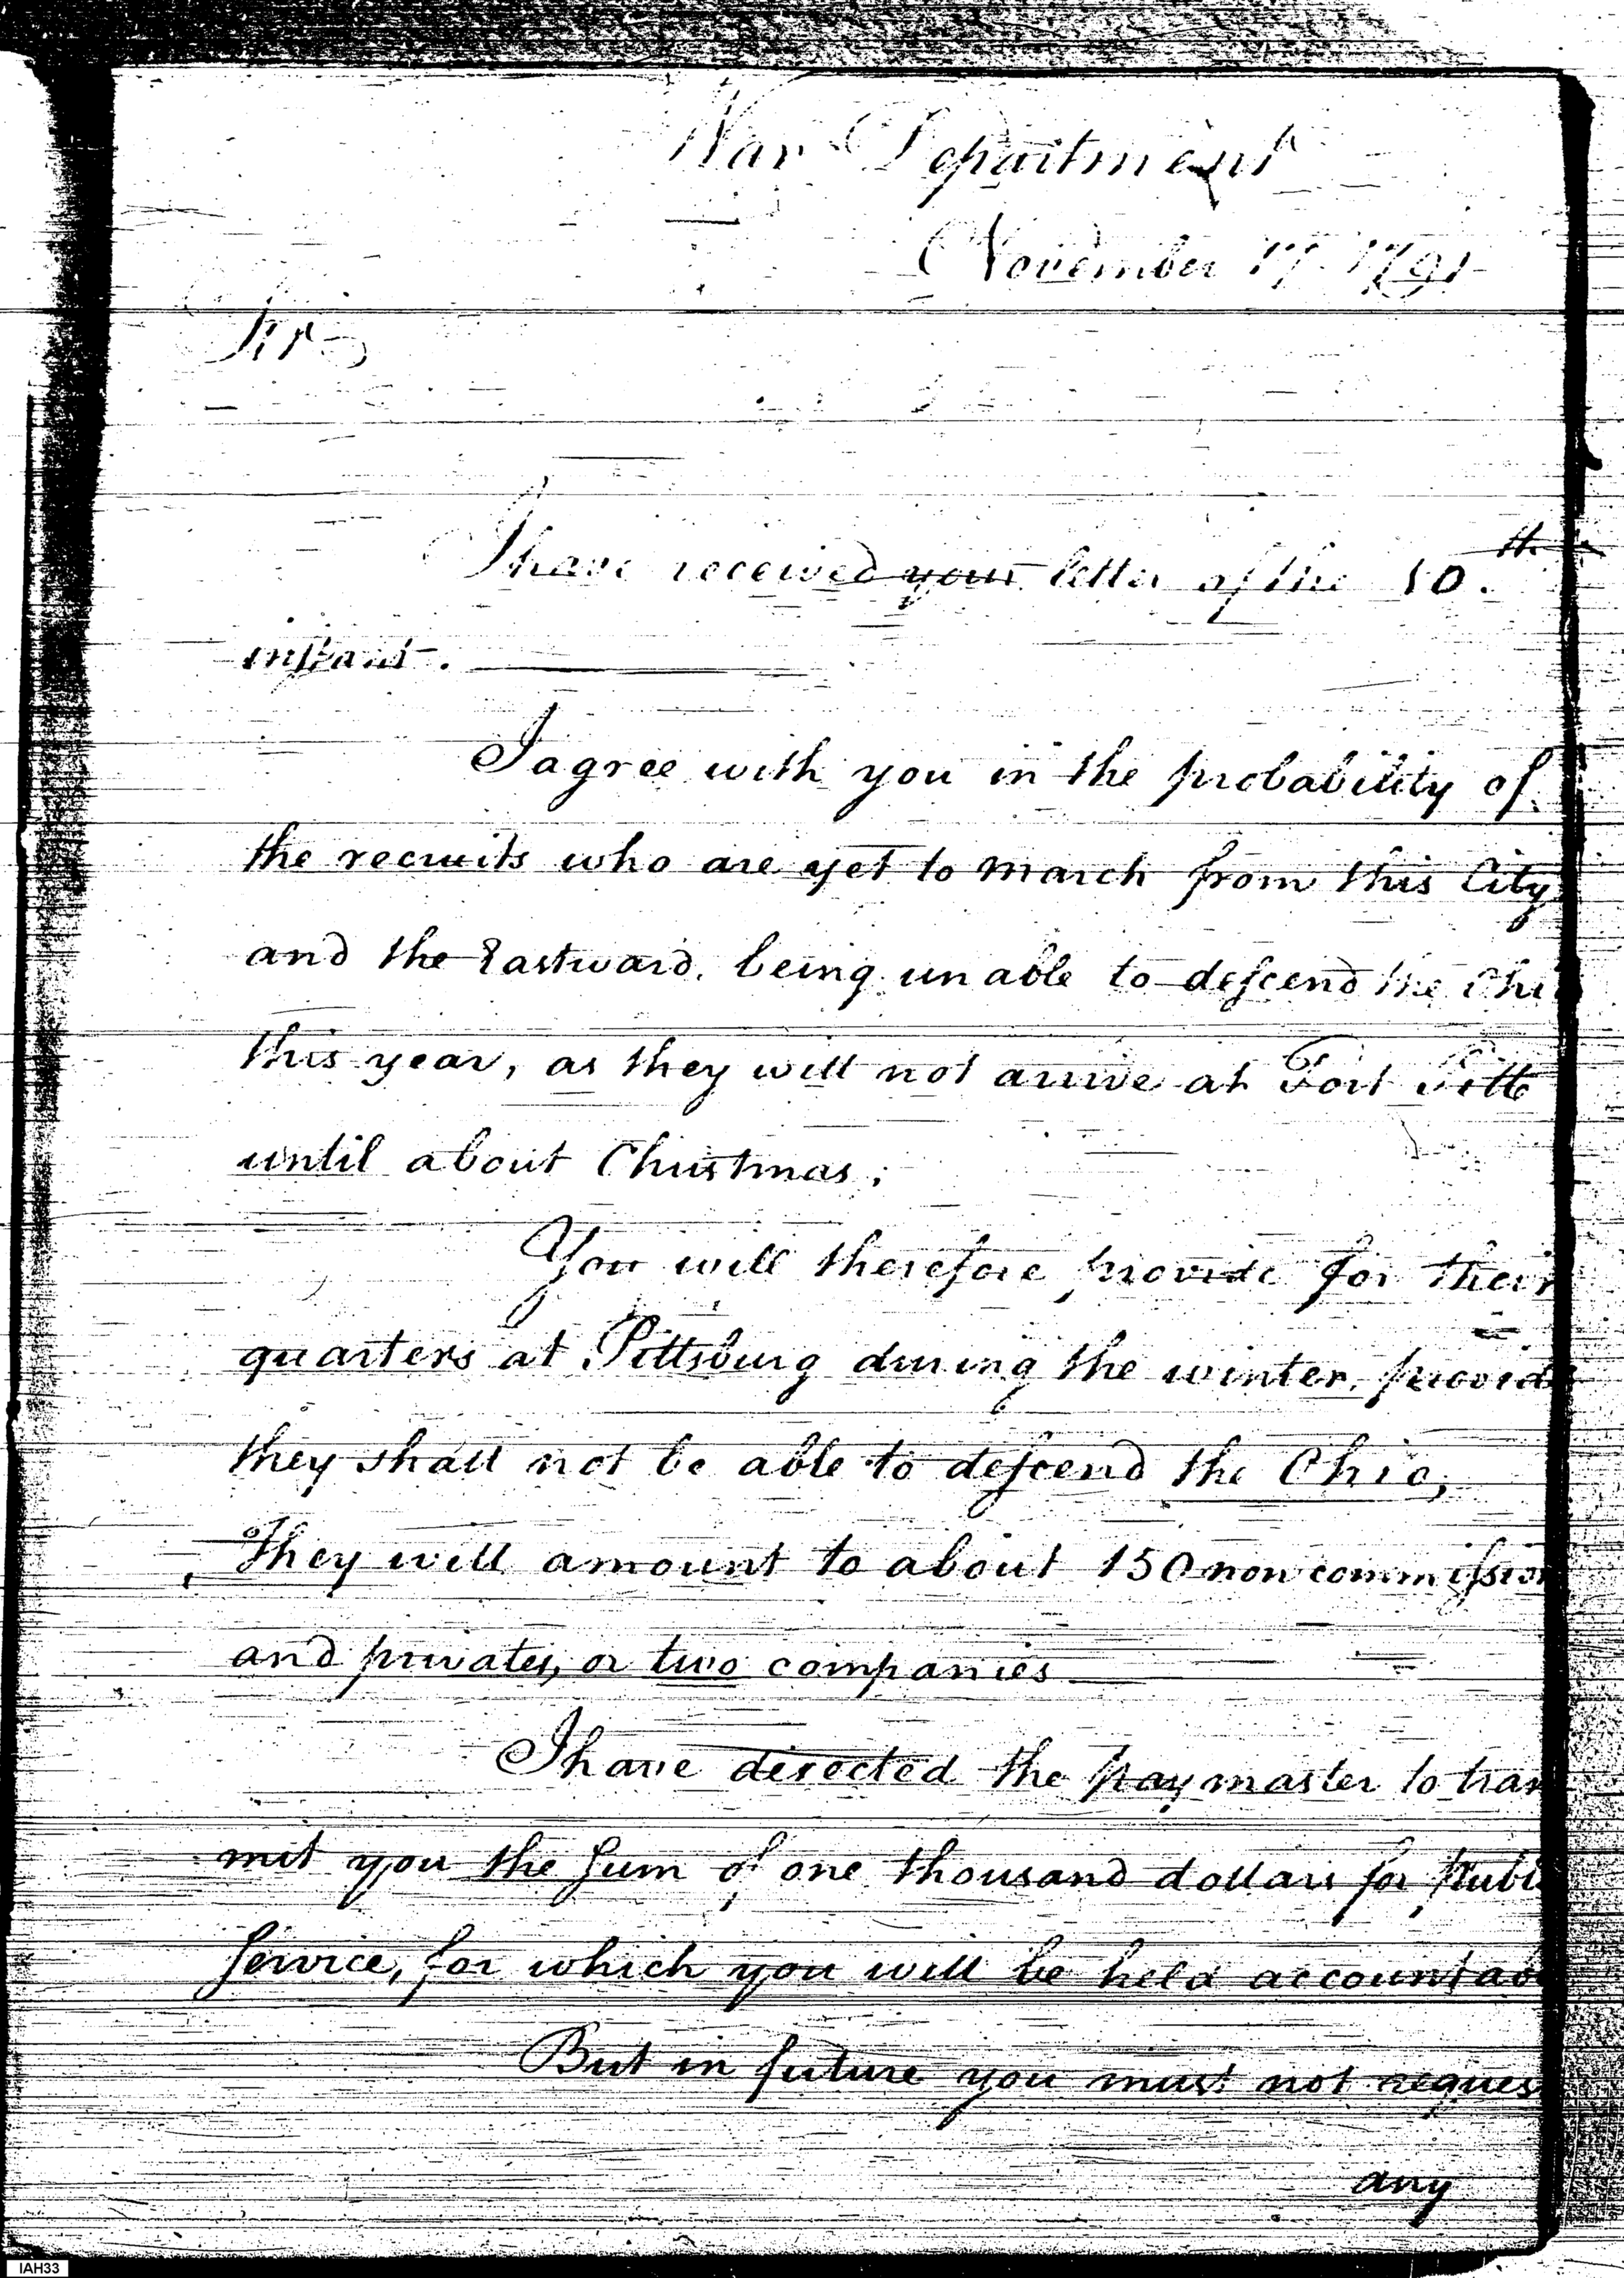 War Department
November 17 1791
Sir
I have received your letter of the 10.th
instant.
I agree with you in the probability of
the recruits who are yet to march from this City
and the Eastward, being unable to descend the Ohio
this year, as they will not arrive at Fort Pitt
until about Christmas.
You will therefore provide for their
quarters at Pittsburg during the winter, provid
they shall not be able to descend the Ohio,
They will amount to about 150 non commission
and privates, or two companies
I have directed the paymaster to tran
mit you the sum of one thousand dollars for publi
service, for which you will be held accountab
But in future you must not reques
any
IAH33